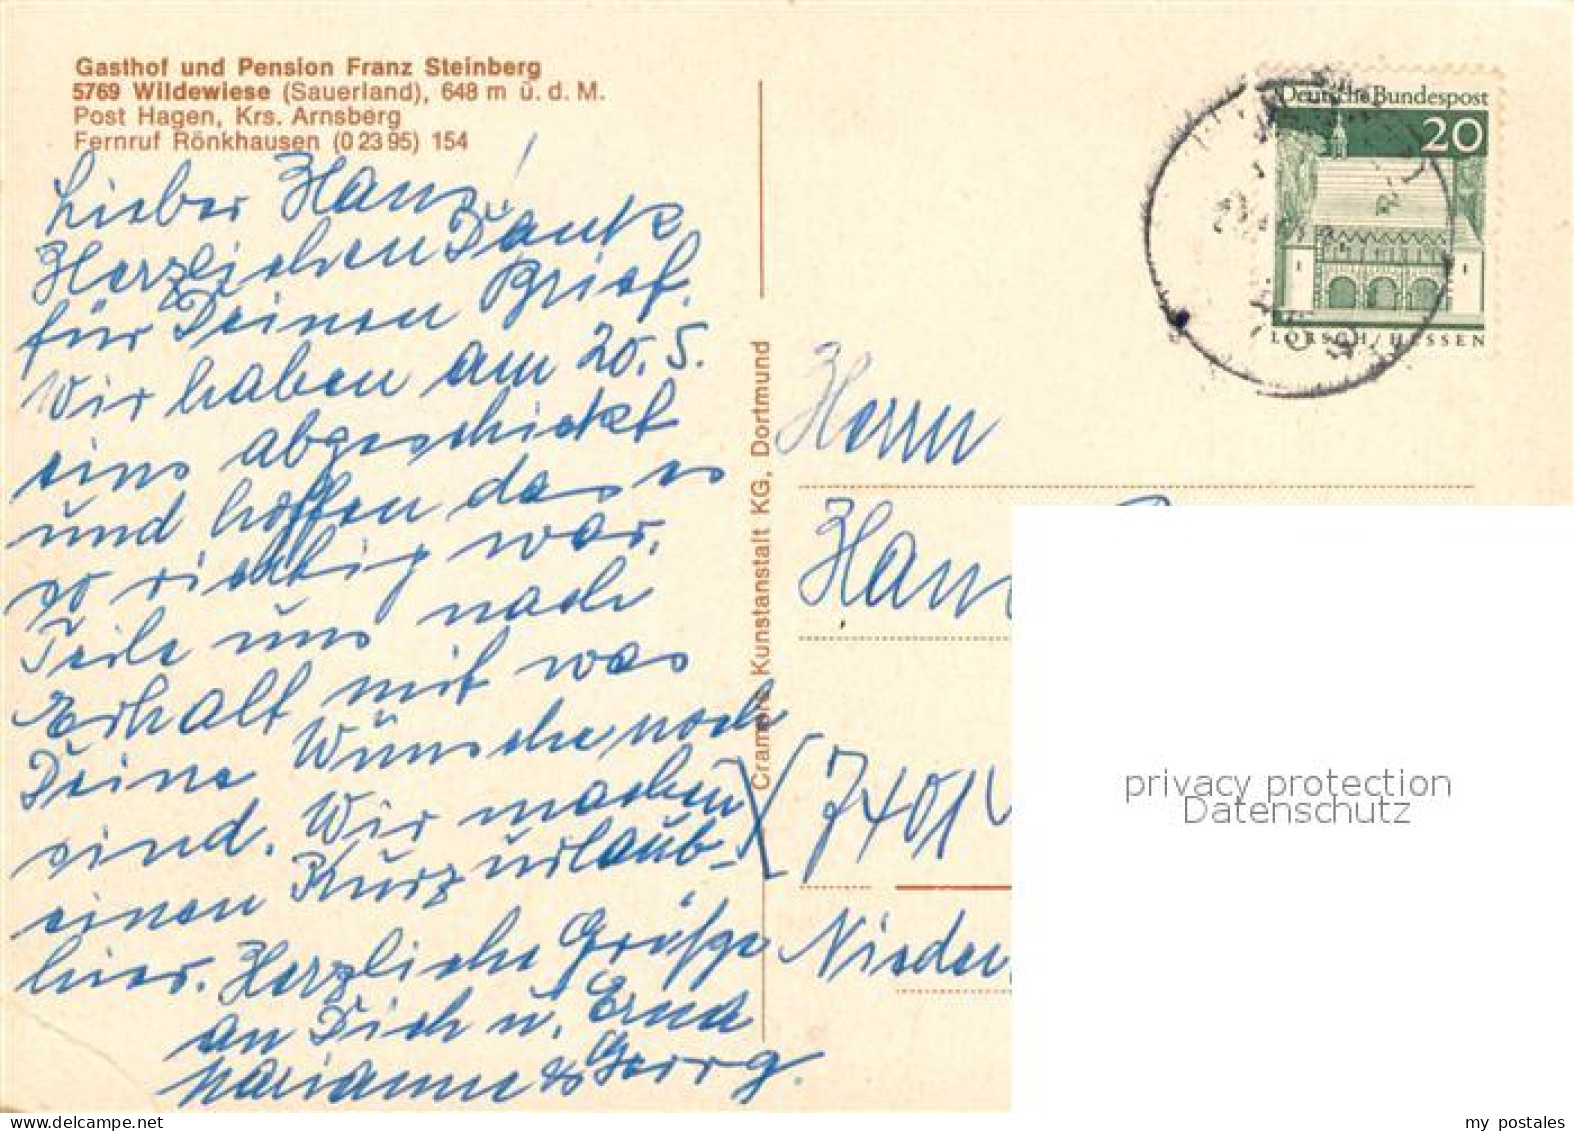 Gasthof und Pension Franz Steinberg
5769 Wildewiese (Sauerland), 648 m ü. d. M.
Post Hagen, Krs. Arnsberg
Fernruf Rönkhausen (0 23 95) 154
Lieber Hans!
Herzlichen Dank
für Deinen Brief.
Wir haben am 20. 5.
eins abgeschickt
und hoffen das es
so richtig war.
Teile uns nach
Erhalt mit was
Deine Wünsche noch
sind. Wir machen
einen Kurzurlaub
hier. Herzliche Grüße
an Dich u. Erna
Marianne & Georg.
Cramers Kunstanstalt KG, Dortmund
Deutsche Bundespost
20
LORSCH/HESSEN
Herrn
Han
7401
Nieder
privacy protection
Datenschutz
my postales